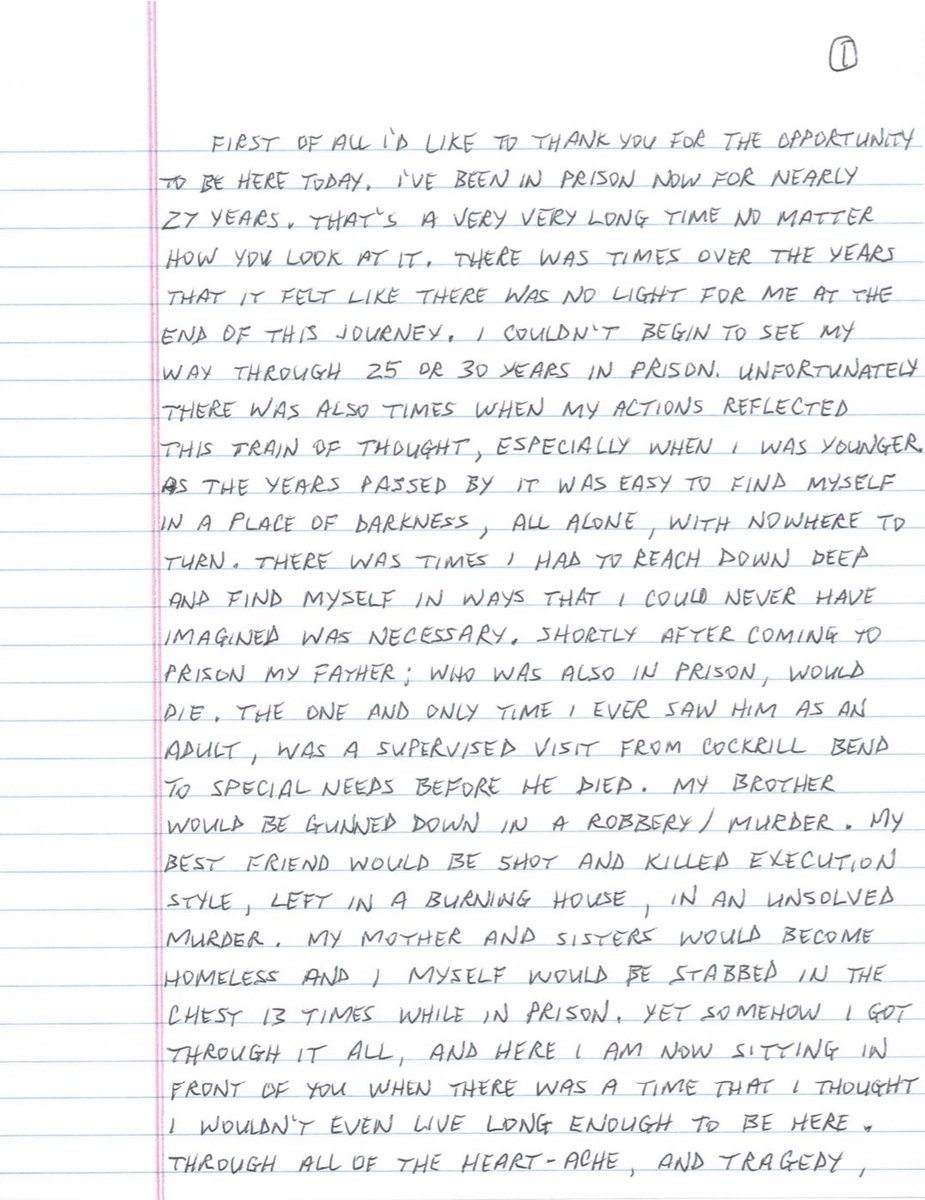 1
FIRST OF ALL I'D LIKE TO THANK YOU FOR THE OPPORTUNITY
TO BE HERE TODAY. I'VE BEEN IN PRISON NOW FOR NEARLY
27 YEARS. THAT'S A VERY VERY LONG TIME NO MATTER
HOW YOU LOOK AT IT. THERE WAS TIMES OVER THE YEARS
THAT IT FELT LIKE THERE WAS NO LIGHT FOR ME AT THE
END OF THIS JOURNEY. I COULDN'T BEGIN TO SEE MY
WAY THROUGH 25 OR 30 YEARS IN PRISON. UNFORTUNATELY
THERE WAS ALSO TIMES WHEN MY ACTIONS REFLECTED
THIS TRAIN OF THOUGHT, ESPECIALLY WHEN I WAS YOUNGER.
AS THE YEARS PASSED BY IT WAS EASY TO FIND MYSELF
IN A PLACE OF DARKNESS, ALL ALONE, WITH NOWHERE TO
TURN. THERE WAS TIMES I HAD TO REACH DOWN DEEP
AND FIND MYSELF IN WAYS THAT I COULD NEVER HAVE
IMAGINED WAS NECESSARY. SHORTLY AFTER COMING TO
PRISON MY FATHER; WHO WAS ALSO IN PRISON, WOULD
DIE. THE ONE AND ONLY TIME I EVER SAW HIM AS AN
ADULT, WAS A SUPERVISED VISIT FROM COCKRILL BEND
TO SPECIAL NEEDS BEFORE HE DIED. MY BROTHER
WOULD BE GUNNED DOWN IN A ROBBERY/MURDER. MY
BEST FRIEND WOULD BE SHOT AND KILLED EXECUTION
STYLE, LEFT IN A BURNING HOUSE, IN AN UNSOLVED
MURDER. MY MOTHER AND SISTERS WOULD BECOME
HOMELESS AND I MYSELF WOULD BE STABBED IN THE
CHEST 13 TIMES WHILE IN PRISON. YET SOMEHOW I GOT
THROUGH IT ALL, AND HERE I AM NOW SITTING IN
FRONT OF YOU WHEN THERE WAS A TIME THAT I THOUGHT
I WOULDN'T EVEN LIVE LONG ENOUGH TO BE HERE.
THROUGH ALL OF THE HEART-ACHE, AND TRAGEDY,